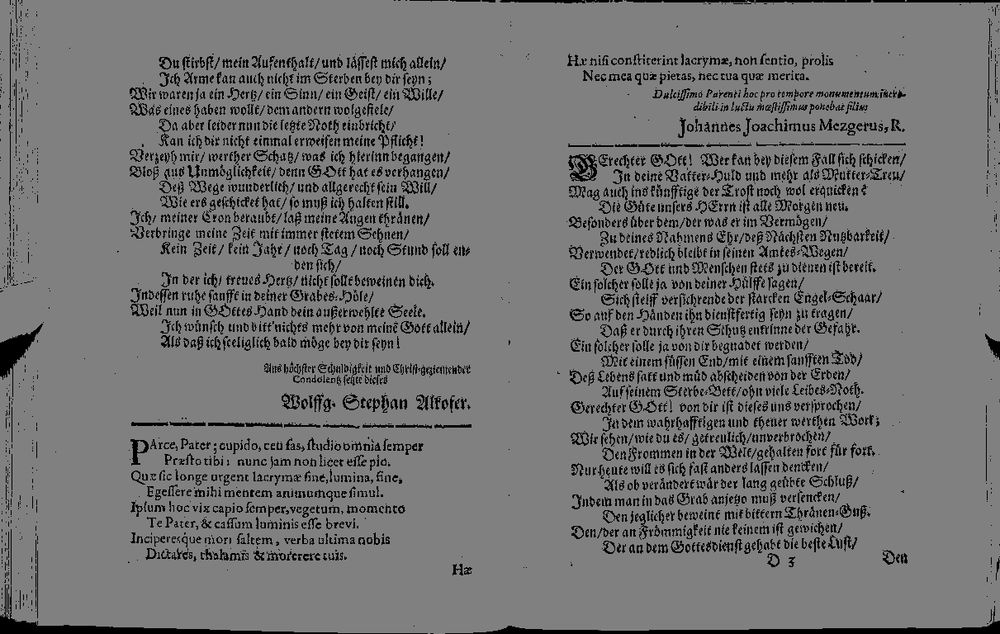 Du stirbst/ mein Aufenthalt/ und lässest mich allein/
Ich Arme kan auch nicht im Sterben bey dir seyn;
Wir waren ja ein Hertz/ ein Sinn/ ein Geist/ ein Wille/
Was eines haben wollt/ dem andern wolgefiele/
Da aber leider nun die letzte Noth einbricht/
Kan ich dir nicht einmal erweisen meine Pflicht!
Verzeyh mir/ werther Schatz/ was ich hierinn begangen/
Bloß aus Unmöglichkeit/ denn Gott hat es verhangen/
Deß Wege wunderlich/ und allgerecht sein Will/
Wie ers geschicket hat/ so muß ich halten still.
Ich/ meiner Cron beraubt/ laß meine Augen thränen/
Verbringe meine Zeit mit immer stetem Sehnen/
Kein Zeit/ kein Jahr/ noch Tag/ noch Stund soll en-
den sich/
In der ich/ treues Hertz/ nicht sollt beweinen dich.
Indessen ruhe sanfft in deiner Grabes-Höle/
Weil nun in GOttes Hand dein außerwehlte Seele.
Ich wünsch und bitt nichts mehr von meinē Gott allein/
Als daß ich seeliglich bald möge bey dir seyn!
Aus höchster Schuldigkeit und Christ-geziemender
Condolentz setzte dieses
Wolffg. Stephan Alkofer.
PArce, Pater; cupido, ceu fas, studio omnia semper
Præsto tibi; nunc jam non licet esse pio.
Quæ sic longe urgent lacrymæ sine, lumina, fine,
Egessere mihi mentem animumque simul.
Ipsum hoc vix capio semper, vegetum, momento
Te Pater, & cassum luminis esse brevi.
Inciperesque mori saltem, verba ultima nobis
Dictares, thalamis & morerere tuis.
Hæ
Hæ nisi constiterint lacrymæ, non sentio, prolis
Nec mea quæ pietas, nec tua quæ merita.
Dulcissimo Parenti hoc pro tempore monumentum incre-
dibili in luctu mœstissimus ponebat filius
Johannes Joachimus Mezgerus, R.
GErechter GOtt! Wer kan bey diesem Fall sich schicken/
In deine Vatter-Huld und mehr als Mutter-Treu/
Mag auch ins künfftige der Trost noch wol erquicken?
Die Güte unsers HErrn ist alle Morgen neu.
Besonders über dem/ der was er im Vermögen/
Zu deines Nahmens Ehr/ deß Nächsten Nutzbarkeit/
Verwendet/ redlich bleibt in seinen Amtes-Wegen/
Der GOtt und Menschen stets zu dienen ist bereit.
Ein solcher solle ja von deiner Hülffe sagen/
Sich steiff versichrende der starcken Engel-Schaar/
So auf den Händen ihn dienstfertig seyn zu tragen/
Daß er durch ihren Schutz entrinne der Gefahr.
Ein solcher solle ja von dir begnadet werden/
Mit einem süssen End/ mit einem sanfften Tod/
Deß Lebens satt und müd abscheiden von der Erden/
Auf seinem Sterbe-Bett/ ohn viele Leibes-Noth.
Gerechter GOtt! von dir ist dieses uns versprochen/
In dem wahrhafftigen und theuer werthen Wort;
Wir sehen/ wie du es/ getreulich/ unverbrochen/
Den Frommen in der Welt/ gehalten fort für fort.
Nur heute will es sich fast anders lassen dencken/
Als ob verändert wär der lang geübte Schluß/
Indem man in das Grab anjetzo muß versencken/
Den jeglicher beweint mit bittern Thränen-Guß.
Den/ der an Frömmigkeit nie keinem ist gewichen/
Der an dem Gottesdienst gehabt die beste Lust/
D 3
Den